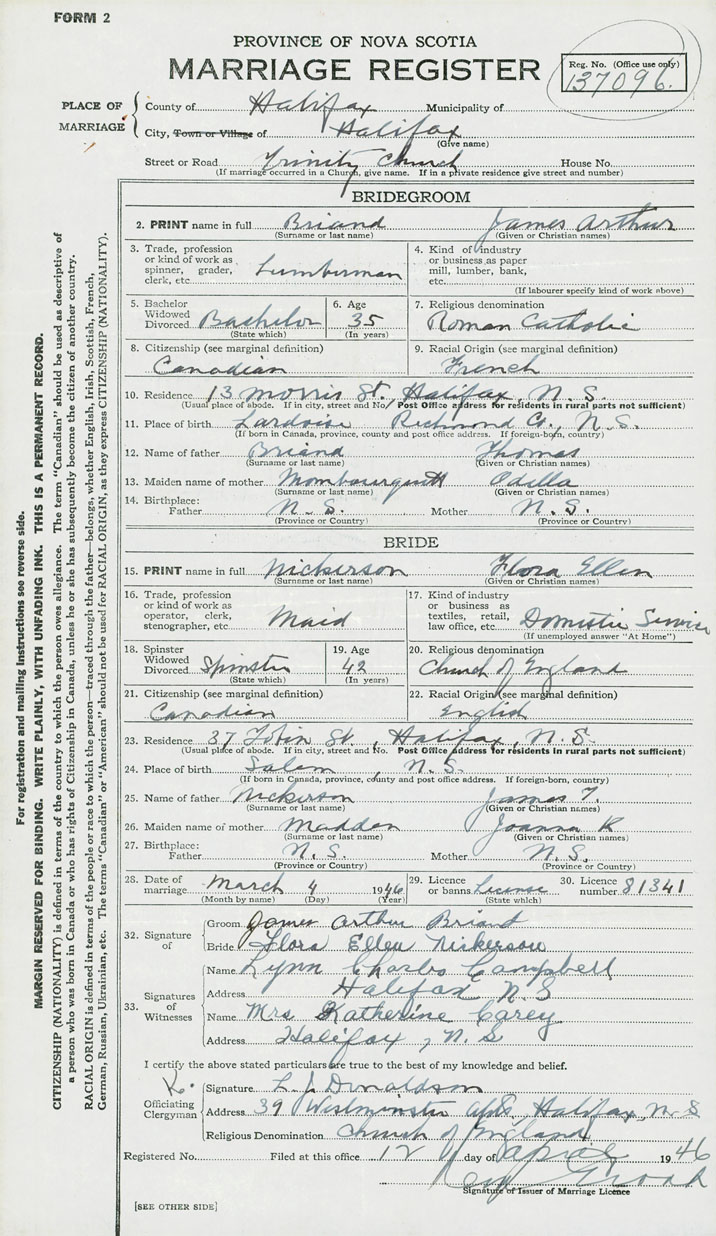 FORM 2
PROVINCE OF NOVA SCOTIA
MARRIAGE REGISTER
Reg. No. (Office use only)
137096.
PLACE OF MARRIAGE
County of Halifax Municipality of
City, Town or Village of Halifax
(Give name)
Street or Road Trinity Church House No.
(If marriage occurred in a Church, give name. If in a private residence give street and number)
BRIDEGROOM
2. PRINT name in full Briand James Arthur
(Surname or last name) (Given or Christian names)
3. Trade, profession or kind of work as spinner, grader, clerk, etc. Lumberman
4. Kind of industry or business as paper mill, lumber, bank, etc.
(If labourer specify kind of work above)
5. Bachelor Widowed Divorced Bachelor
(State which)
6. Age 35
(In years)
7. Religious denomination
Roman Catholic
8. Citizenship (see marginal definition)
Canadian
9. Racial Origin (see marginal definition)
French
10. Residence 13 Morris St. Halifax, N. S.
(Usual place of abode. If in city, street and No. Post Office address for residents in rural parts not sufficient)
11. Place of birth Lardoise Richmond Co., N. S.
(If born in Canada, province, county and post office address. If foreign-born, country)
12. Name of father Briand Thomas
(Surname or last name) (Given or Christian names)
13. Maiden name of mother Odilla
(Surname or last name) (Given or Christian names)
14. Birthplace:
Father N. S. Mother N. S.
(Province or Country) (Province or Country)
BRIDE
15. PRINT name in full Nickerson Flora Ellen
(Surname or last name) (Given or Christian names)
16. Trade, profession or kind of work as operator, clerk, stenographer, etc. Maid
17. Kind of industry or business as textiles, retail, law office, etc. Domestic Service
(If unemployed answer "At Home")
18. Spinster Widowed Divorced Spinster
(State which)
19. Age 42
(In years)
20. Religious denomination
Church of England
21. Citizenship (see marginal definition)
Canadian
22. Racial Origin (see marginal definition)
English
23. Residence 37 Tobin St., Halifax, N. S.
(Usual place of abode. If in city, street and No. Post Office address for residents in rural parts not sufficient)
24. Place of birth Salem, N. S.
(If born in Canada, province, county and post office address. If foreign-born, country)
25. Name of father Nickerson James T.
(Surname or last name) (Given or Christian names)
26. Maiden name of mother Madden Joanna R
(Surname or last name) (Given or Christian names)
27. Birthplace:
Father N. S. Mother N. S.
(Province or Country) (Province or Country)
28. Date of marriage March 4 1946
(Month by name) (Day) (Year)
29. Licence or banns License
(State which)
30. Licence number 81341
32. Signature of
Groom James Arthur Briand
Bride Flora Ellen Nickerson
33. Signatures of Witnesses
Name Lynn Charles Campbell
Address Halifax N. S
Name Mrs Katherine Carey
Address Halifax, N. S
I certify the above stated particulars are true to the best of my knowledge and belief.
Officiating Clergyman
Signature L. J. Donaldson
Address 39 Westminster Apts, Halifax, N. S
Religious Denomination Church of England
Registered No. Filed at this office 12 day of April 1946
Signature of Issuer of Marriage Licence
[SEE OTHER SIDE]
For registration and mailing instructions see reverse side.
MARGIN RESERVED FOR BINDING. WRITE PLAINLY, WITH UNFADING INK. THIS IS A PERMANENT RECORD.
CITIZENSHIP (NATIONALITY) is defined in terms of the country to which the person owes allegiance. The term "Canadian" should be used as descriptive of
a person who was born in Canada or who has rights of Citizenship in Canada, unless he or she has subsequently become the citizen of another country.
RACIAL ORIGIN is defined in terms of the people or race to which the person—traced through the father—belongs, whether English, Irish, Scottish, French,
German, Russian, Ukrainian, etc. The terms "Canadian" or "American" should not be used for RACIAL ORIGIN, as they express CITIZENSHIP (NATIONALITY).